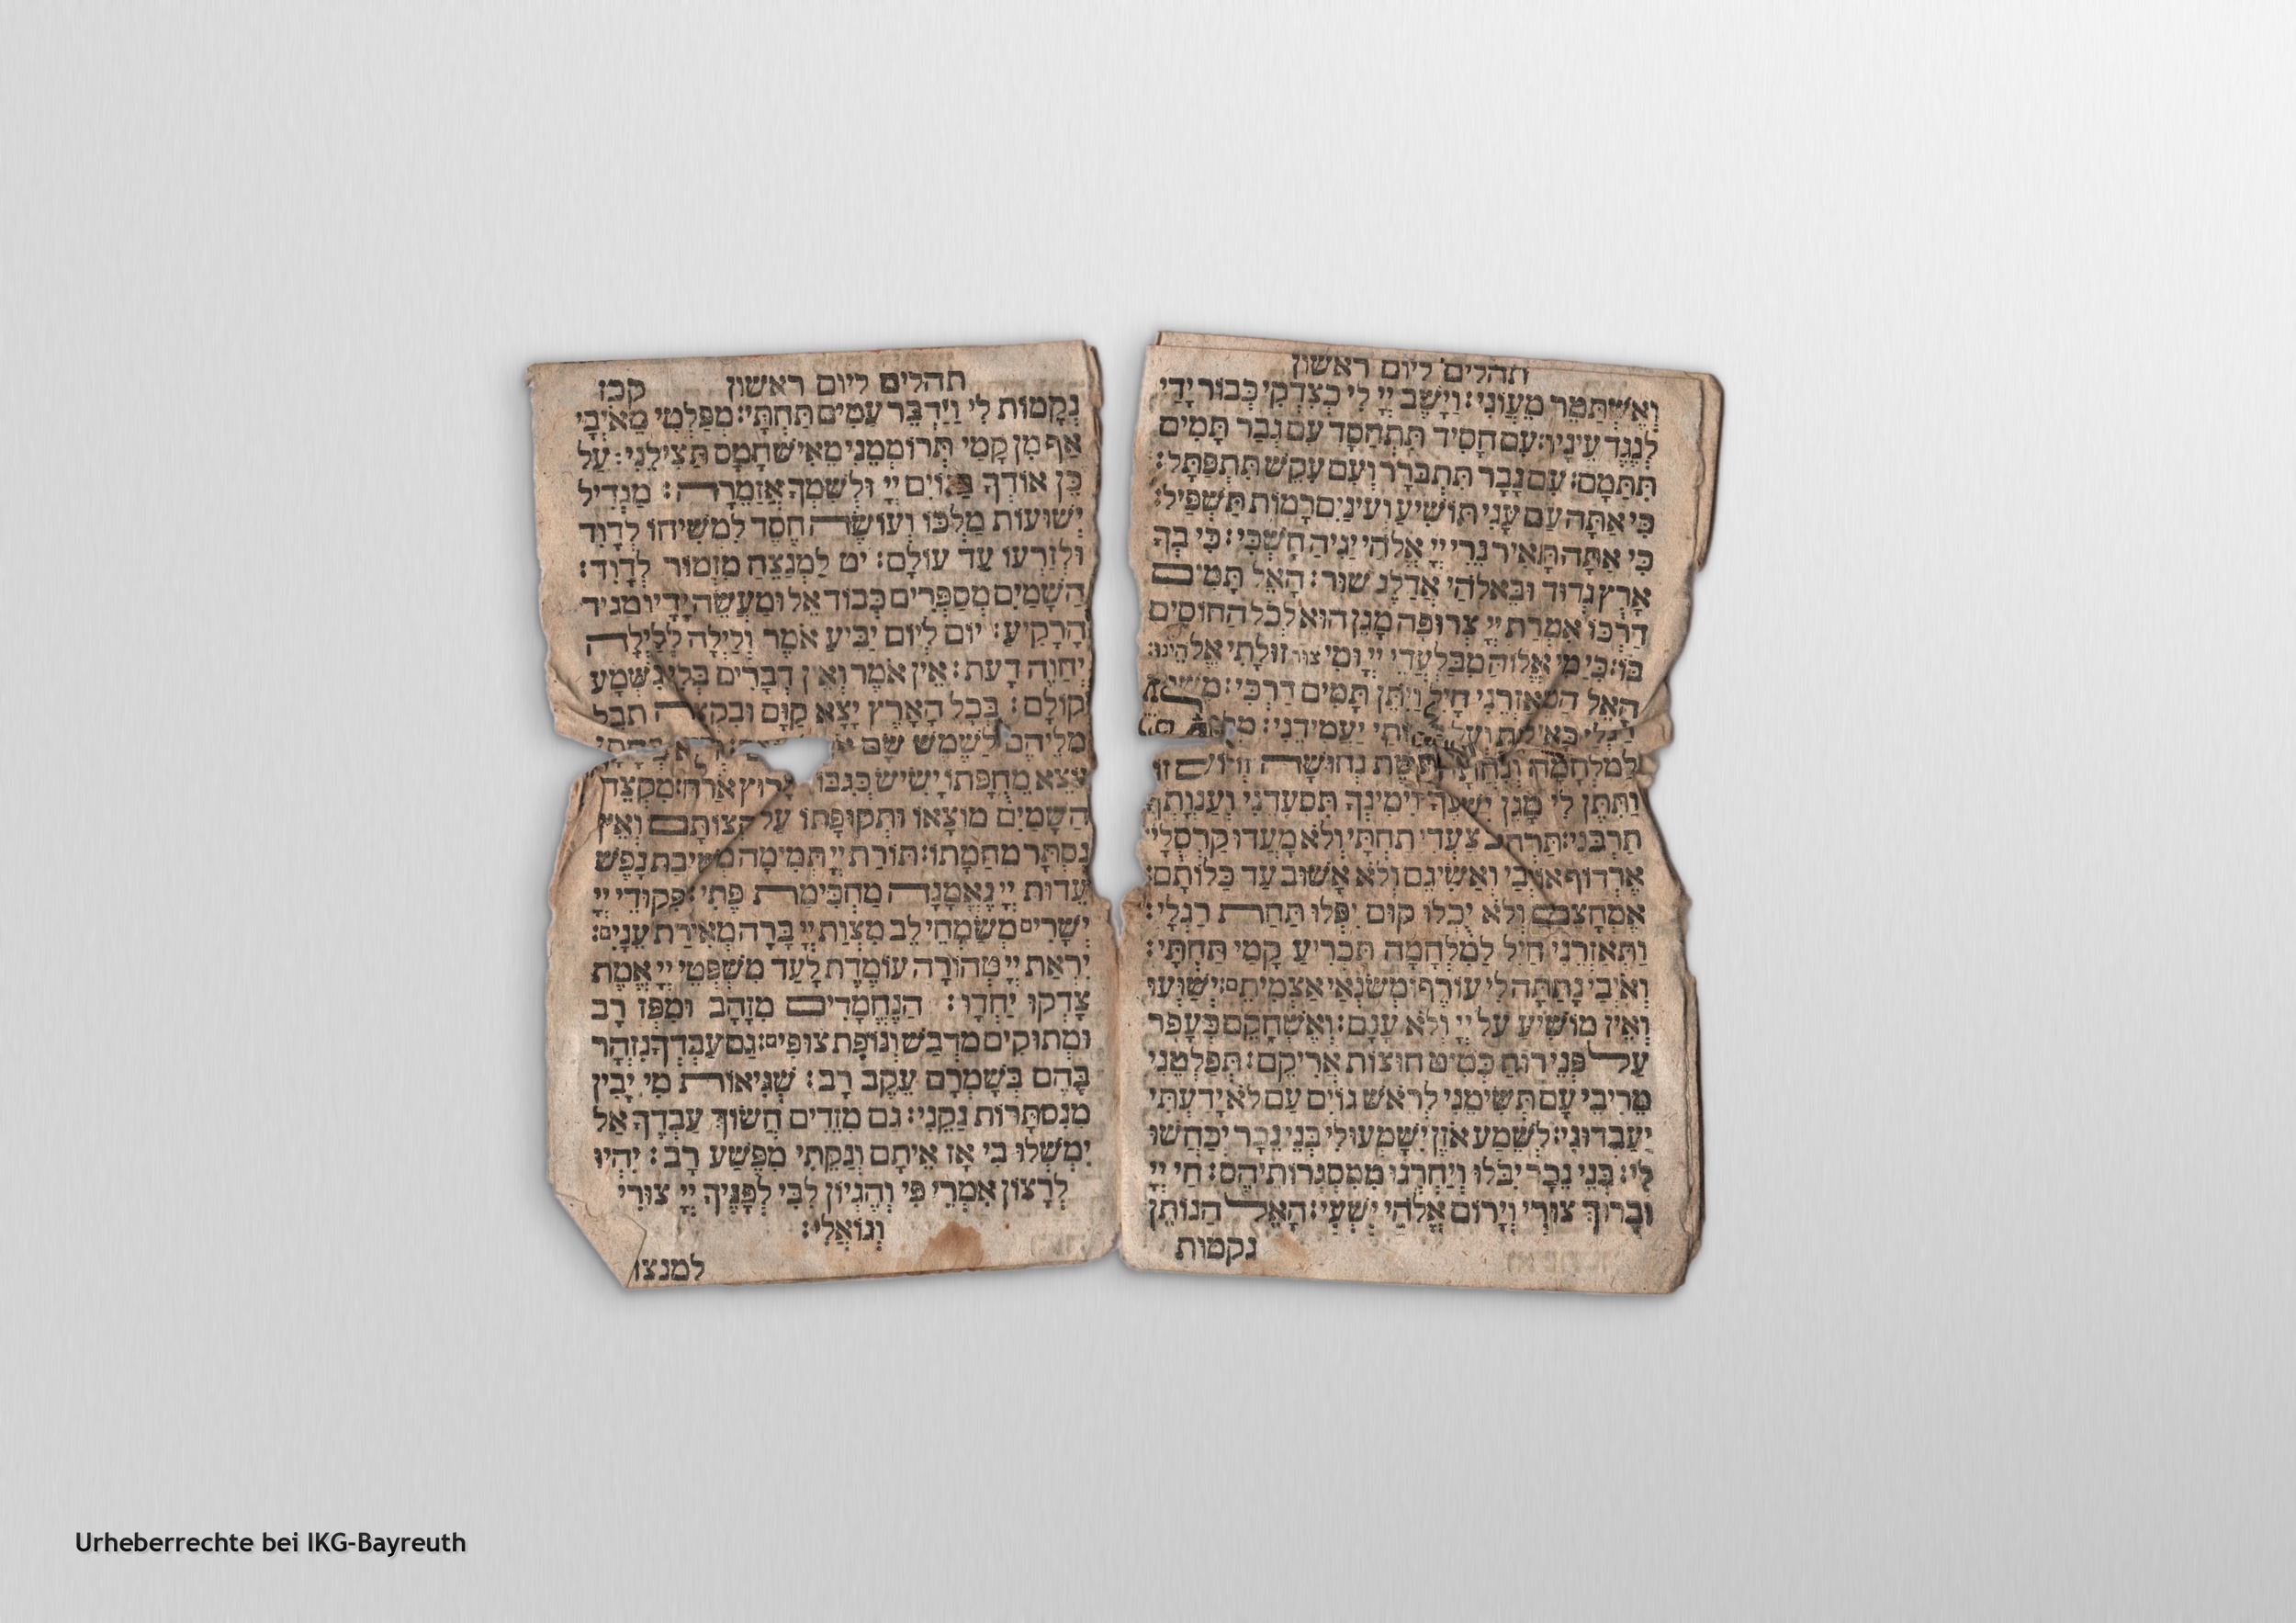 תהלים ליום ראשון
וְאֶשְׁתַּמֵּר מֵעֲוֹנִי: וַיָּשֶׁב יְיָ לִי כְצִדְקִי כְּבוֹר יָדַי
לְנֶגֶד עֵינָיו: עִם חָסִיד תִּתְחַסָּד עִם גְּבַר תָּמִים
תִּתַּמָּם: עִם נָבָר תִּתְבָּרָר וְעִם עִקֵּשׁ תִּתְפַּתָּל:
כִּי אַתָּה עַם עָנִי תּוֹשִׁיעַ וְעֵינַיִם רָמוֹת תַּשְׁפִּיל:
כִּי אַתָּה תָּאִיר נֵרִי יְיָ אֱלֹהַי יַגִּיהַּ חָשְׁכִּי: כִּי בְךָ
אָרֻץ גְּדוּד וּבֵאלֹהַי אֲדַלֶּג שׁוּר: הָאֵל תָּמִים
דַּרְכּוֹ אִמְרַת יְיָ צְרוּפָה מָגֵן הוּא לְכֹל הַחוֹסִים
בּוֹ: כִּי מִי אֱלוֹהַּ מִבַּלְעֲדֵי יְיָ וּמִי צוּר זוּלָתִי אֱלֹהֵינוּ:
הָאֵל הַמְאַזְּרֵנִי חָיִל וַיִּתֵּן תָּמִים דַּרְכִּי: מְשַׁוֶּה
רַגְלַי כָּאַיָּלוֹת וְעַל יַעֲמִידֵנִי:
לַמִּלְחָמָה וְנִחֲתָה קֶשֶׁת נְחוּשָׁה
וַתִּתֶּן לִי מָגֵן יִשְׁעֶךָ וִימִינְךָ תִסְעָדֵנִי וְעַנְוָתְךָ
תַרְבֵּנִי: תַּרְחִיב צַעֲדִי תַחְתָּי וְלֹא מָעֲדוּ קַרְסֻלָּי:
אֶרְדּוֹף אוֹיְבַי וְאַשִּׂיגֵם וְלֹא אָשׁוּב עַד כַּלּוֹתָם:
אֶמְחָצֵם וְלֹא יֻכְלוּ קוּם יִפְּלוּ תַּחַת רַגְלָי:
וַתְּאַזְּרֵנִי חַיִל לַמִּלְחָמָה תַּכְרִיעַ קָמַי תַּחְתָּי:
וְאֹיְבַי נָתַתָּה לִּי עוֹרֶף וּמְשַׂנְאַי אַצְמִיתֵם: יְשַׁוְּעוּ
וְאֵין מוֹשִׁיעַ עַל יְיָ וְלֹא עָנָם: וְאֶשְׁחָקֵם כְּעָפָר
עַל פְּנֵי רוּחַ כְּטִיט חוּצוֹת אֲרִיקֵם: תְּפַלְּטֵנִי
מֵרִיבֵי עָם תְּשִׂימֵנִי לְרֹאשׁ גּוֹיִם עַם לֹא יָדַעְתִּי
יַעַבְדוּנִי: לְשֵׁמַע אֹזֶן יִשָּׁמְעוּ לִי בְּנֵי נֵכָר יְכַחֲשׁוּ
לִי: בְּנֵי נֵכָר יִבֹּלוּ וְיַחְרְגוּ מִמִּסְגְּרוֹתֵיהֶם: חַי יְיָ
וּבָרוּךְ צוּרִי וְיָרוּם אֱלֹהֵי יִשְׁעִי: הָאֵל הַנּוֹתֵן
נקמות
תהלים ליום ראשון קכז
נְקָמוֹת לִי וַיַּדְבֵּר עַמִּים תַּחְתָּי: מְפַלְּטִי מֵאֹיְבָי
אַף מִן קָמַי תְּרוֹמְמֵנִי מֵאִישׁ חָמָס תַּצִּילֵנִי: עַל
כֵּן אוֹדְךָ בַגּוֹיִם יְיָ וּלְשִׁמְךָ אֲזַמֵּרָה: מַגְדִּיל
יְשׁוּעוֹת מַלְכּוֹ וְעוֹשֶׂה חֶסֶד לִמְשִׁיחוֹ לְדָוִד
וּלְזַרְעוֹ עַד עוֹלָם: יט לַמְנַצֵּחַ מִזְמוֹר לְדָוִד:
הַשָּׁמַיִם מְסַפְּרִים כְּבוֹד אֵל וּמַעֲשֵׂה יָדָיו מַגִּיד
הָרָקִיעַ: יוֹם לְיוֹם יַבִּיעַ אֹמֶר וְלַיְלָה לְלַיְלָה
יְחַוֶּה דָעַת: אֵין אֹמֶר וְאֵין דְּבָרִים בְּלִי נִשְׁמָע
קוֹלָם: בְּכָל הָאָרֶץ יָצָא קַוָּם וּבִקְצֵה תֵבֵל
מִלֵּיהֶם לַשֶּׁמֶשׁ שָׂם
יֹצֵא מֵחֻפָּתוֹ יָשִׂישׂ כְּגִבּוֹר לָרוּץ אֹרַח: מִקְצֵה
הַשָּׁמַיִם מוֹצָאוֹ וּתְקוּפָתוֹ עַל קְצוֹתָם וְאֵין
נִסְתָּר מֵחַמָּתוֹ: תּוֹרַת יְיָ תְּמִימָה מְשִׁיבַת נָפֶשׁ
עֵדוּת יְיָ נֶאֱמָנָה מַחְכִּימַת פֶּתִי: פִּקּוּדֵי יְיָ
יְשָׁרִים מְשַׂמְּחֵי לֵב מִצְוַת יְיָ בָּרָה מְאִירַת עֵנָיִם:
יִרְאַת יְיָ טְהוֹרָה עוֹמֶדֶת לָעַד מִשְׁפְּטֵי יְיָ אֱמֶת
צָדְקוּ יַחְדָּו: הַנֶּחֱמָדִים מִזָּהָב וּמִפַּז רָב
וּמְתוּקִים מִדְּבַשׁ וְנוֹפֶת צוּפִים: גַּם עַבְדְּךָ נִזְהָר
בָּהֶם בְּשָׁמְרָם עֵקֶב רָב: שְׁגִיאוֹת מִי יָבִין
מִנִּסְתָּרוֹת נַקֵּנִי: גַּם מִזֵּדִים חֲשׂוֹךְ עַבְדֶּךָ אַל
יִמְשְׁלוּ בִי אָז אֵיתָם וְנִקֵּתִי מִפֶּשַׁע רָב: יִהְיוּ
לְרָצוֹן אִמְרֵי פִי וְהֶגְיוֹן לִבִּי לְפָנֶיךָ יְיָ צוּרִי
וְגוֹאֲלִי:
למנצח
Urheberrechte bei IKG-Bayreuth